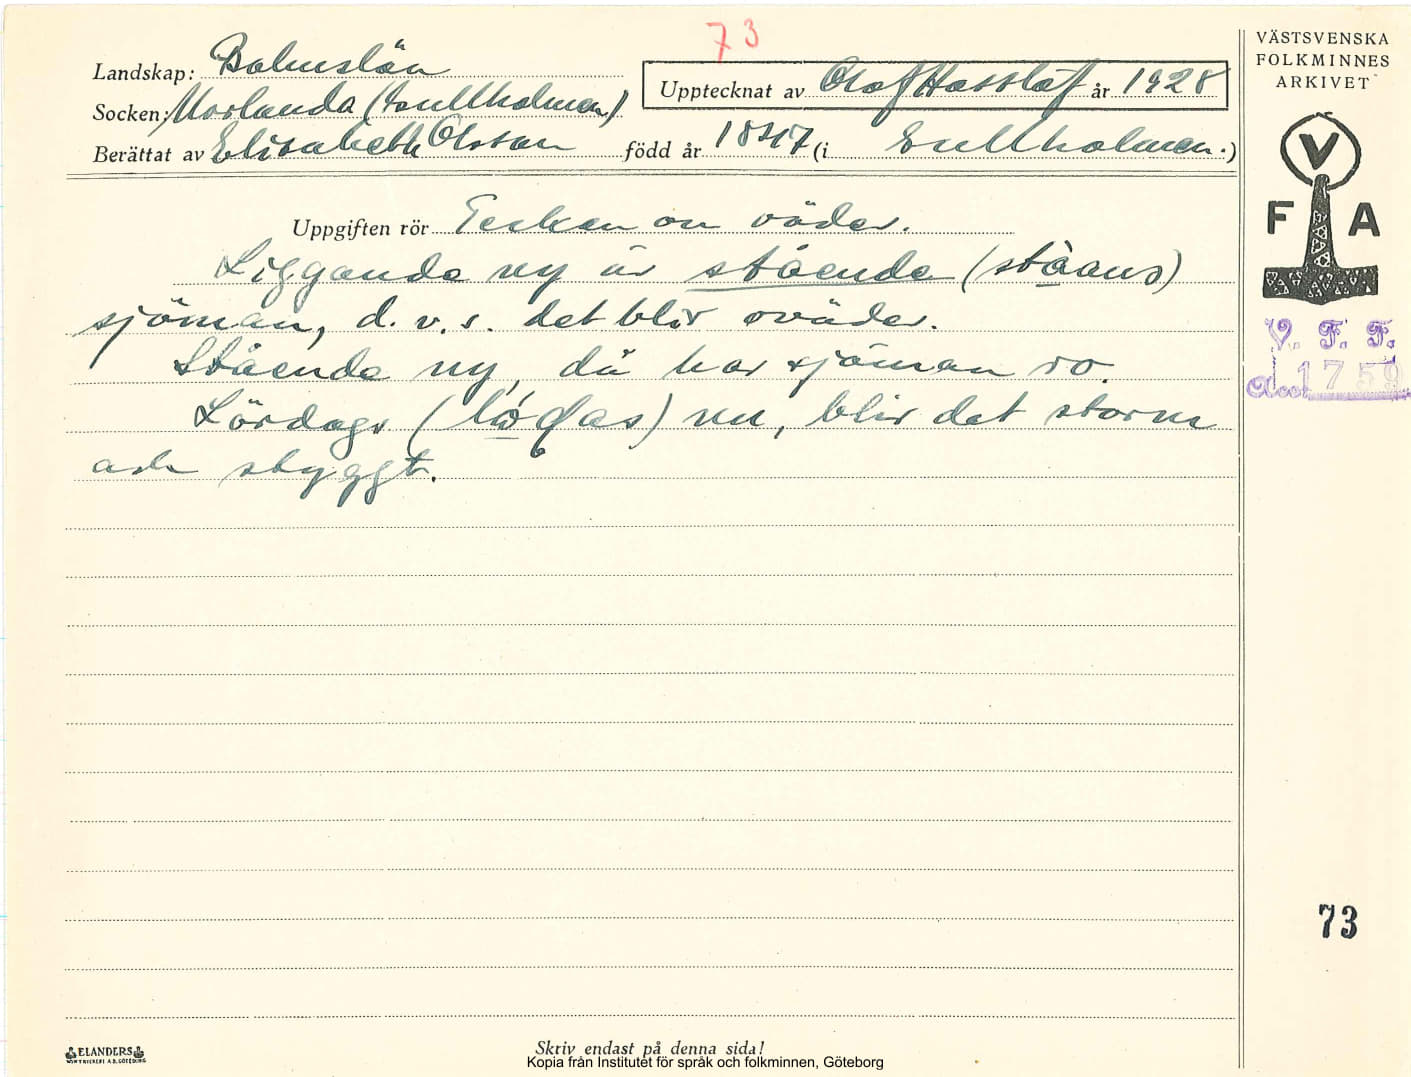 73
Landskap: Bohuslän
Upptecknat av Olof Hasslöf år 1928
Socken: Morlanda (Gullholmen)
Berättat av Elisabeth Olsson född år 1847 (i Gullholmen.)
Uppgiften rör Tecken om väder.
Liggande ny är stående (ståans)
sjöman, d.v.s. det blir oväder.
Stående ny, då har sjöman ro.
Lördags ny, blir det storm
och styggt.
VÄSTSVENSKA
FOLKMINNES
ARKIVET
V
F A
V. F. F.
Acc. 1759
73
ELANDERS
Skriv endast på denna sida!
Kopia från Institutet för språk och folkminnen, Göteborg